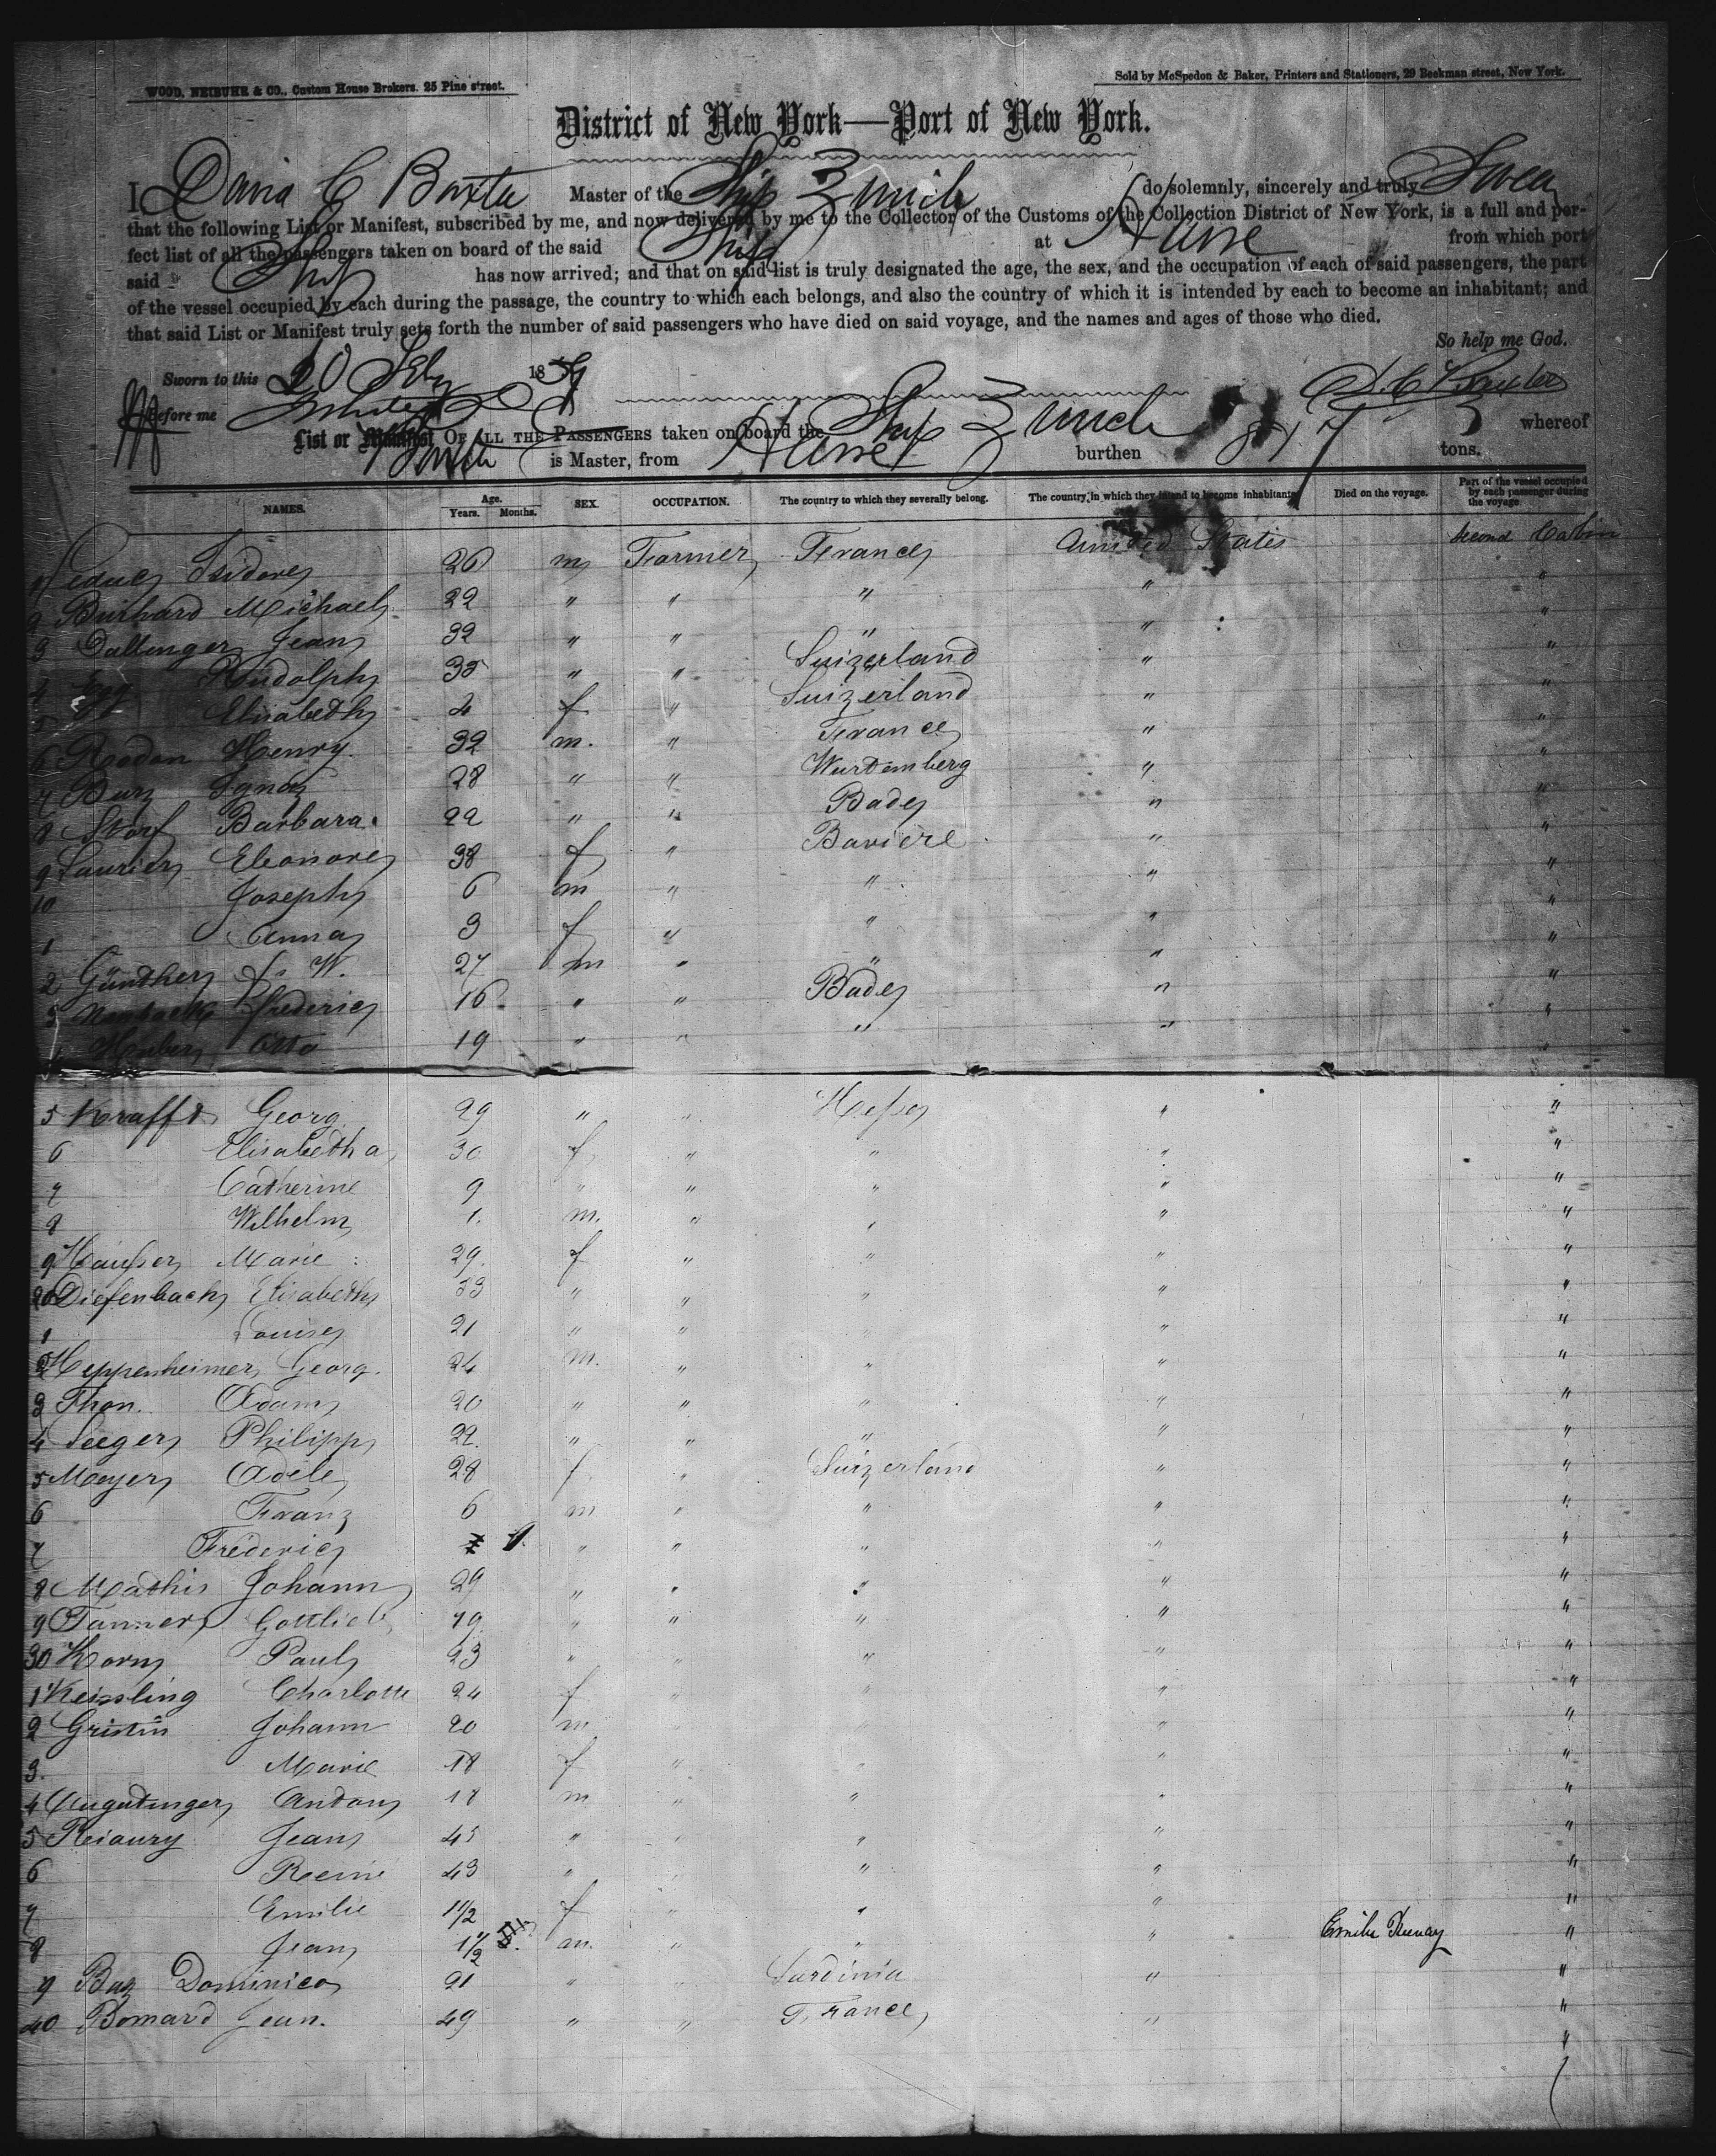 WOOD, NEIBUHR & CO., Custom House Brokers. 25 Pine street.
Sold by McSpedon & Baker, Printers and Stationers, 29 Beekman street, New York.
District of New York—Port of New York.
I David C Baxter Master of the Ship Zurich do solemnly, sincerely and truly Swear
that the following List or Manifest, subscribed by me, and now delivered by me to the Collector of the Customs of the Collection District of New York, is a full and per-
fect list of all the passengers taken on board of the said Ship at Havre from which port
said Ship has now arrived; and that on said list is truly designated the age, the sex, and the occupation of each of said passengers, the part
of the vessel occupied by each during the passage, the country to which each belongs, and also the country of which it is intended by each to become an inhabitant; and
that said List or Manifest truly sets forth the number of said passengers who have died on said voyage, and the names and ages of those who died.
So help me God.
Sworn to this 20 Feby 1854
Before me D. C. Baxter
List or Manifest OF ALL THE PASSENGERS taken on board the Ship Zurich whereof
Baxter is Master, from Havre burthen 817 tons.
NAMES. Age. Years. Months. SEX. OCCUPATION. The country to which they severally belong. The country in which they intend to become inhabitants Died on the voyage. Part of the vessel occupied by each passenger during the voyage
1 Leduc Isidore 26 m Farmer France United States Second Cabin
2 Burhard Michael 22 " " " " "
3 Dallinger Jean 32 " " " " "
4 Rudolph 35 " " Suizerland " "
5 Elisabeth 4 f " Suizerland " "
6 Rodon Henry. 32 m. " France " "
7 Burz Ignaz 28 " " Wurtemberg " "
8 Storf Barbara. 22 " " Bade " "
9 Laurier Eleonore 38 f " Baviere " "
10 Joseph 6 m " " " "
1 Anna 3 f " " " "
2 Günther J. W. 27 m " " " "
3 Frederic 16. " " Bade " "
4 Otto 19 " " " " "
5 Krafft Georg 29 " " Hesse " "
6 Elisabetha 30 f " " " "
7 Catherine 9 " " " " "
8 Wilhelm 1. m. " " " "
9 Hausser Marie 29. f " " " "
20 Diefenbach Elisabeth 33 " " " " "
1 Louise 21 " " " " "
2 Heppenheimer Georg. 24 m. " " " "
3 Thon. Adam 20 " " " " "
4 Seeger Philipp 22. " " " " "
5 Meyer Adele 28 f " Suizerland " "
6 Franz 6 m " " " "
7 Frederic 9. " " " " "
8 Mathis Johann 29 " " " " "
9 Tanner Gottlieb 19 " " " " "
30 Korn Paul 23 " " " " "
1 Keissling Charlotte 24 f " " " "
2 Gristin Johann 20 m " " " "
3. Marie 18 f " " " "
4 Augutinger Anton 18 m " " " "
5 Reiaury Jean 45 " " " " "
6 Reine 43 " " " " "
7 Emilie 1 1/2 f " " " "
8 Jean 1 1/2 m. " " " Emilie "
9 Baz Dominico 21 " " Sardinia " "
40 Bomard Jean. 49 " " France " "
"